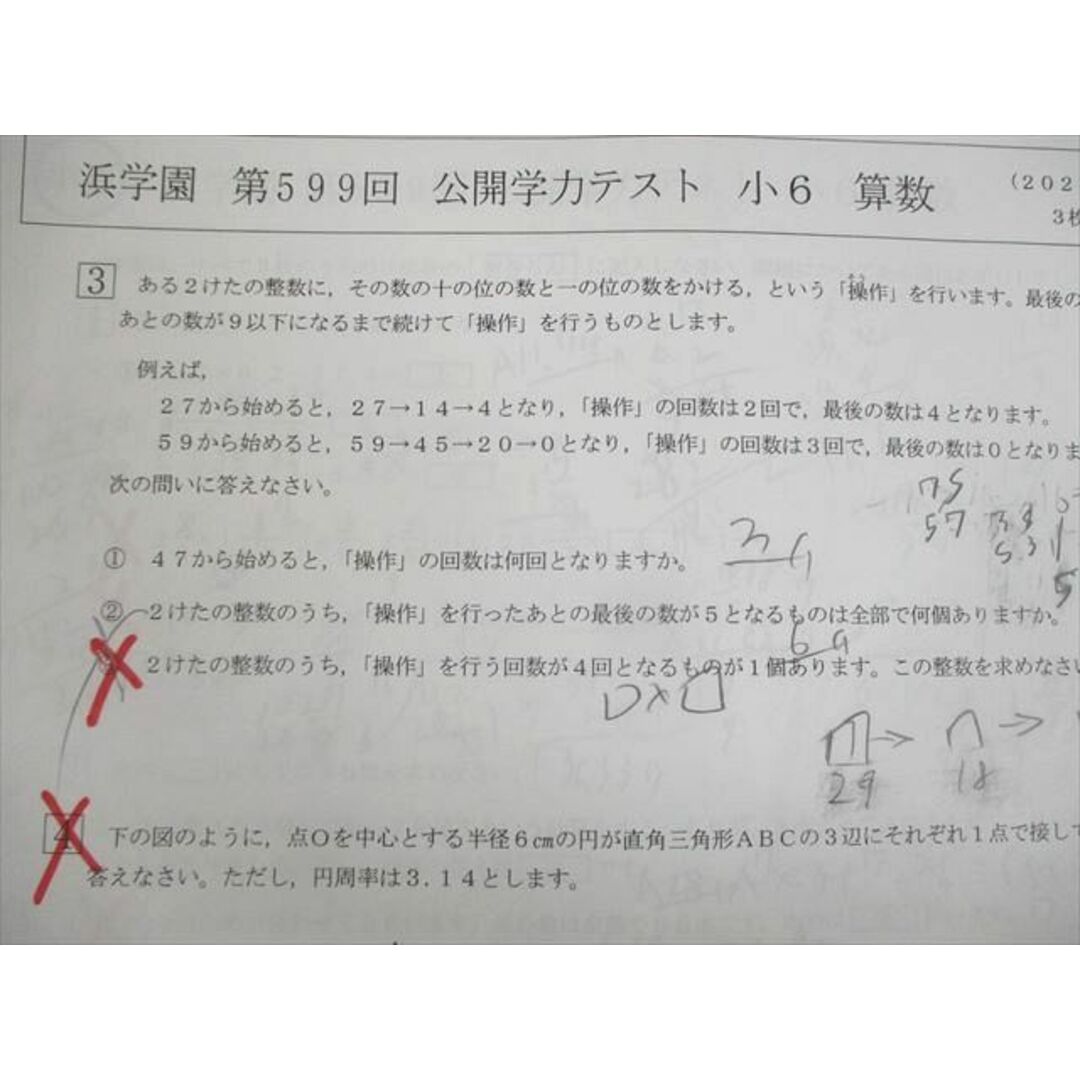 浜学園 第599回 公開学力テスト 小6 算数
(202
3枚
3 ある2けたの整数に，その数の十の位の数と一の位の数をかける，という「操作」を行います。最後の
あとの数が9以下になるまで続けて「操作」を行うものとします。
例えば，
27から始めると，27→14→4となり，「操作」の回数は2回で，最後の数は4となります。
59から始めると，59→45→20→0となり，「操作」の回数は3回で，最後の数は0となりま
次の問いに答えなさい。
75
57
① 47から始めると，「操作」の回数は何回となりますか。
② 2けたの整数のうち，「操作」を行ったあとの最後の数が5となるものは全部で何個ありますか。
2けたの整数のうち，「操作」を行う回数が4回となるものが1個あります。この整数を求めなさい
29
18
4 下の図のように，点Oを中心とする半径6cmの円が直角三角形ABCの3辺にそれぞれ1点で接して
答えなさい。ただし，円周率は3.14とします。